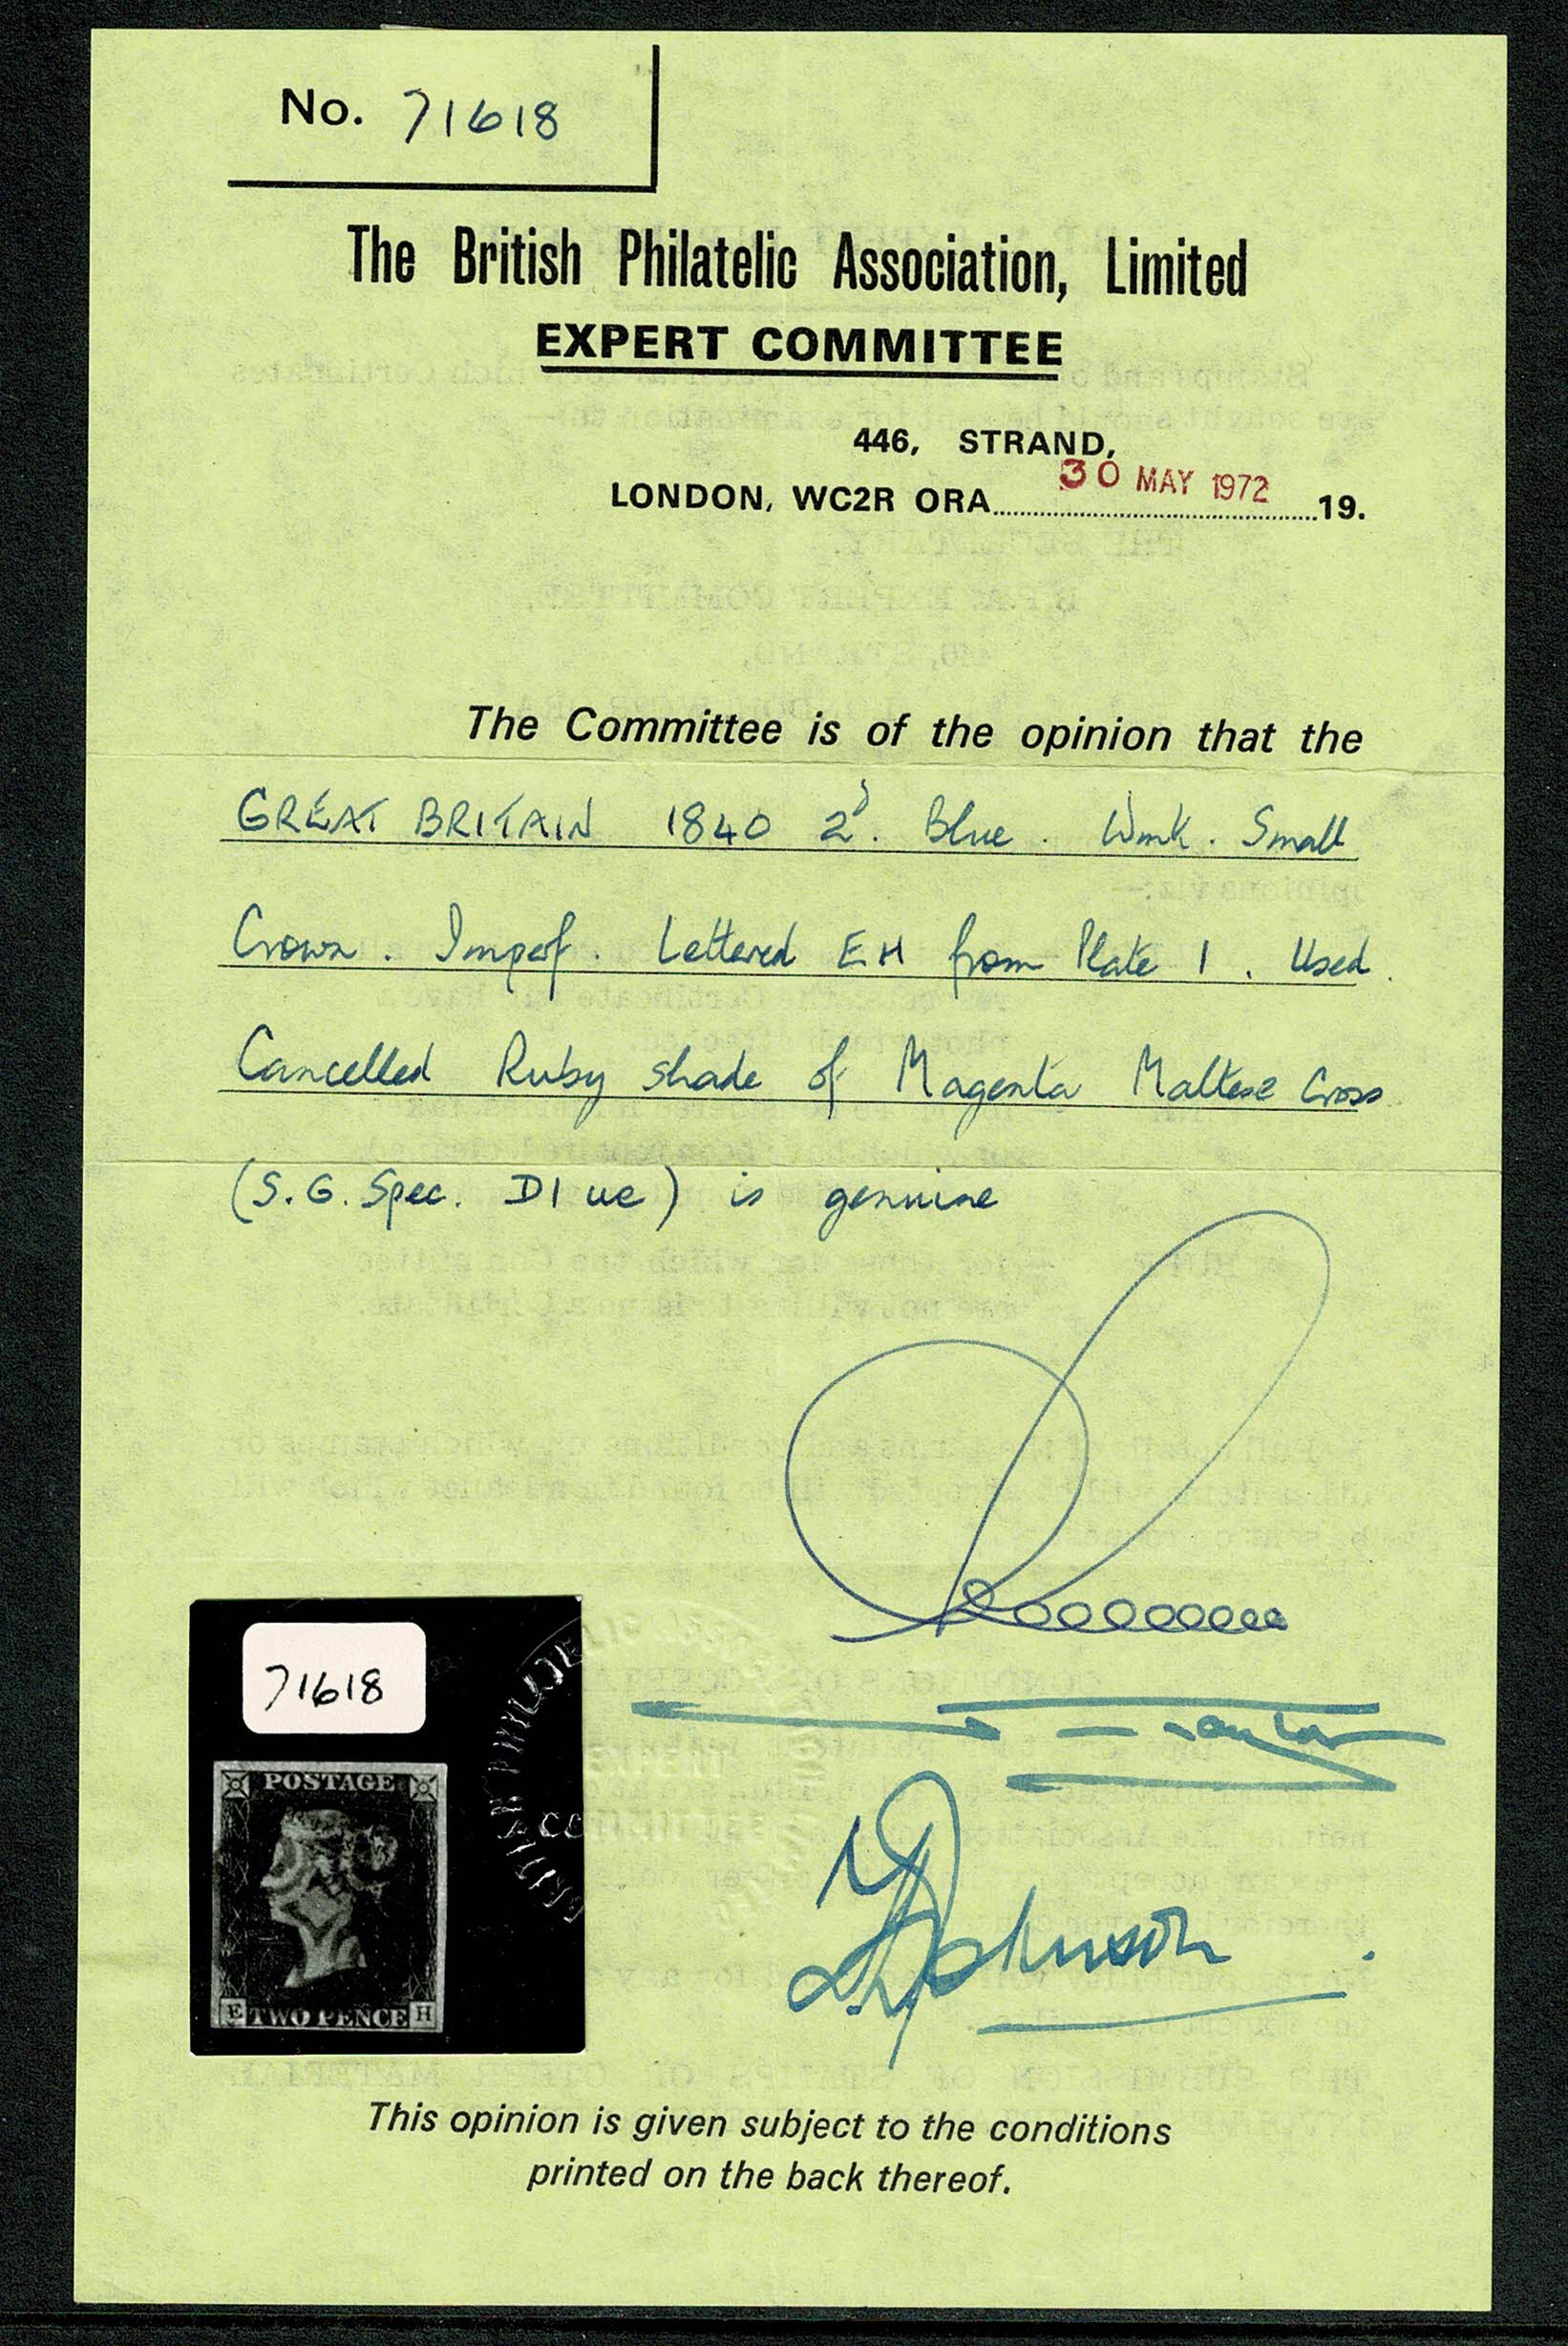 No. 71618
The British Philatelic Association, Limited
EXPERT COMMITTEE
446, STRAND,
LONDON, WC2R ORA 30 MAY 1972 19.
The Committee is of the opinion that the
GREAT BRITAIN 1840 2d. Blue. Wmk. Small
Crown. Imperf. Lettered EH from Plate 1. Used.
Cancelled Ruby shade of Magenta Maltese Cross
(S.G. Spec. D1 ue) is genuine
71618
POSTAGE
E TWO PENCE H
Johnson
This opinion is given subject to the conditions
printed on the back thereof.